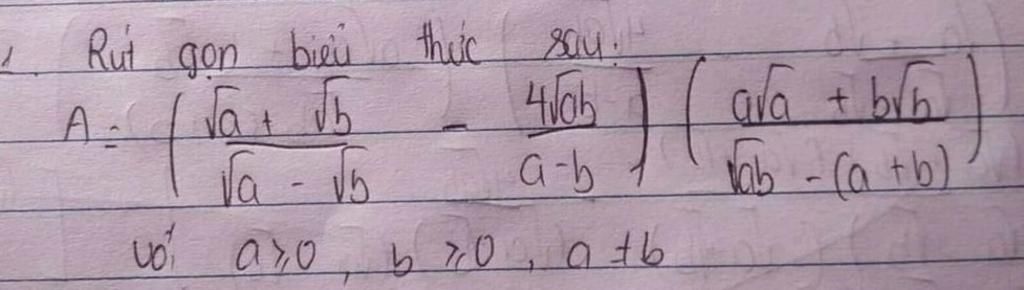 1. Rút gọn biểu thức sau:
A = ( (√a + √b)/(√a - √b) - (4√ab)/(a-b) ) ( (a√a + b√b)/(√ab - (a+b)) )
với a ≥ 0, b ≥ 0, a ≠ b